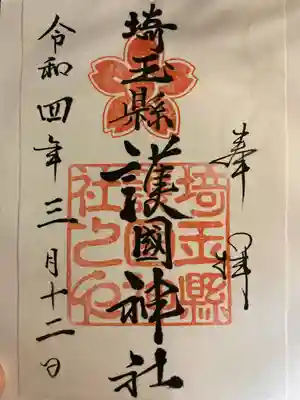 奉拝
埼玉縣護國神社
埼玉縣護國神社之印
令和四年三月十二日